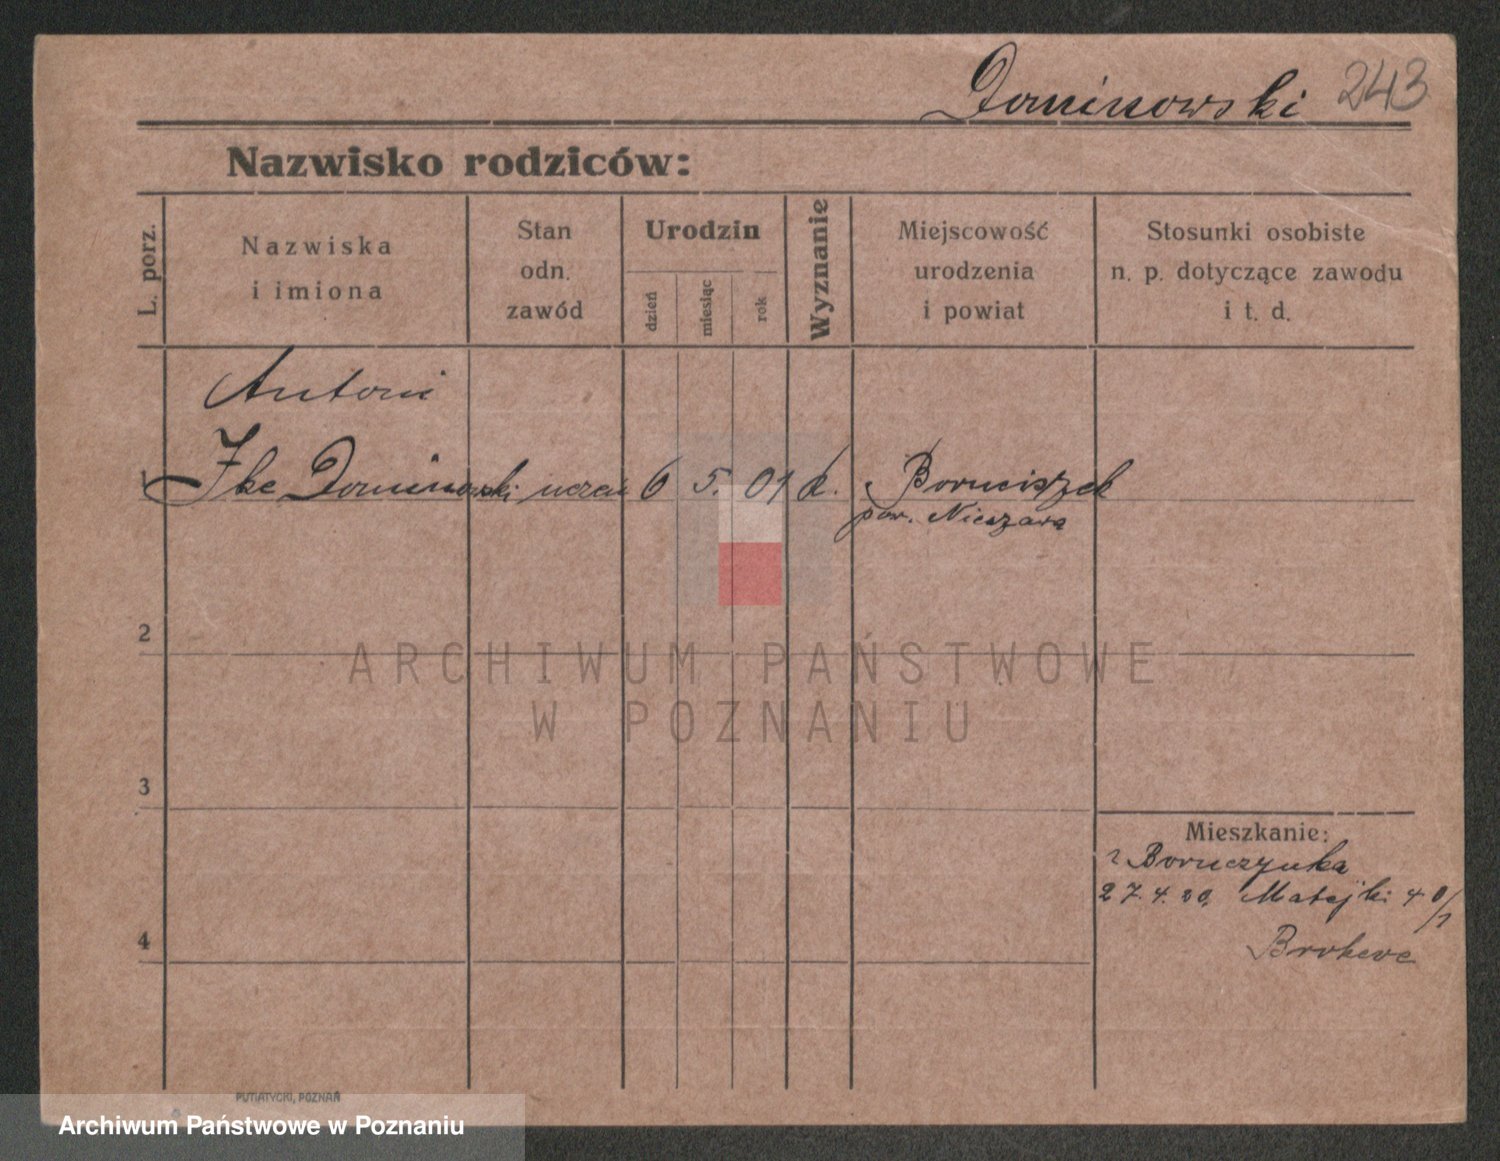 Dominowski 243
Nazwisko rodziców:
L. porz.
Nazwiska
i imiona
Stan
odn.
zawód
Urodzin
dzień
miesiąc
rok
Wyznanie
Miejscowość
urodzenia
i powiat
Stosunki osobiste
n. p. dotyczące zawodu
i t. d.
Antoni
1 Dominowski uczeń 6 5. 01 k.
pow. Nieszawa
2
3
4
Mieszkanie:
27.4.20. Matejki 40/1
ARCHIWUM PAŃSTWOWE
W POZNANIU
PUTIATYCKI, POZNAŃ
Archiwum Państwowe w Poznaniu